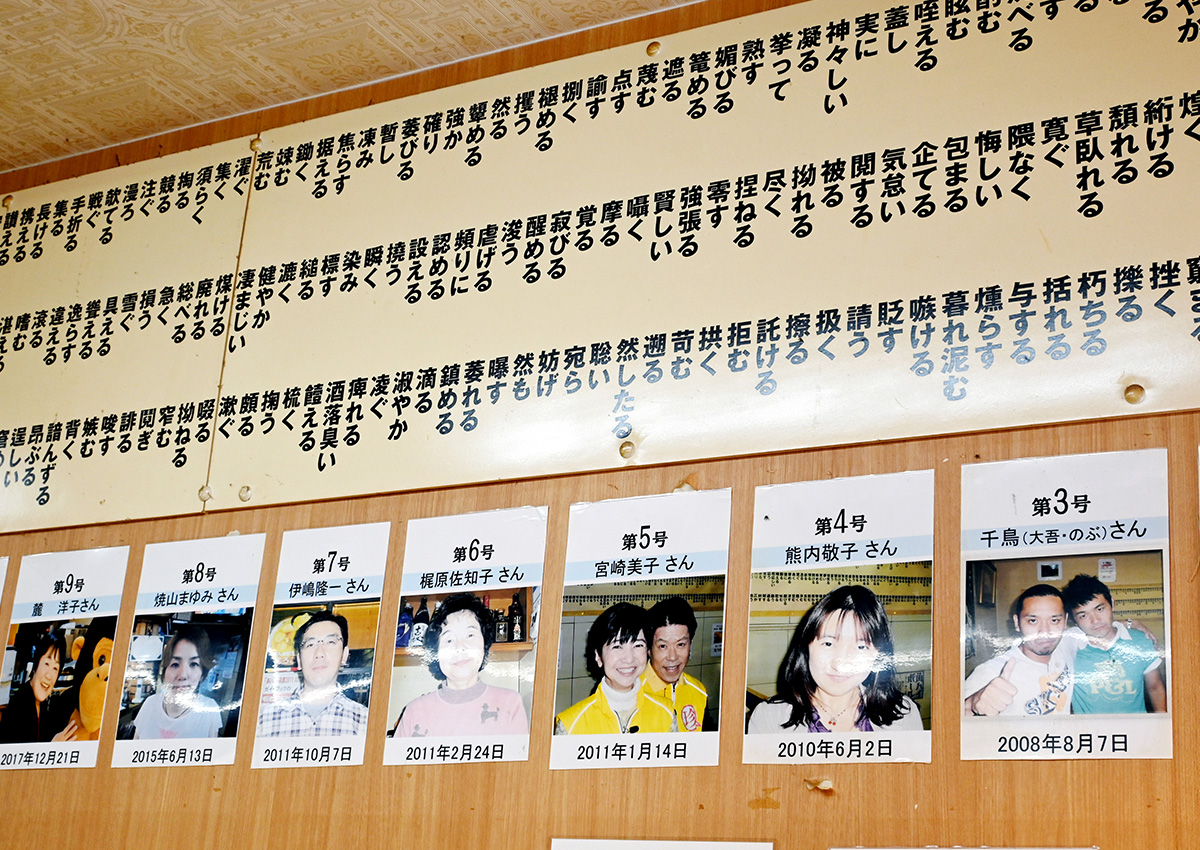 眩む
咥える
蓋し
実に
神々しい
凝る
挙って
熟す
媚びる
篭める
遮る
蔑む
点す
諭す
捌く
褪める
攫う
然る
顰める
強か
確り
萎びる
暫し
凍み
焦らす
据える
鋤く
竦む
荒む
濯ぐ
集く
須らく
掏る
競る
注ぐ
漫ろ
欹てる
戦ぐ
手折る
集る
長ける
携える
讃える
絎ける
頽れる
草臥れる
寛ぐ
隈なく
悔しい
包まる
企てる
気怠い
閲する
被る
拗れる
尽く
捏ねる
零す
強張る
賢しい
囁く
摩る
覚る
寂びる
醒める
浚う
虐げる
頻りに
認める
設える
撓う
瞬く
染み
標す
縋る
漉く
健やか
凄まじい
煤ける
廃れる
総べる
急く
損う
雪ぐ
具える
聳える
逸らす
違える
滾る
嗜む
湛える
挫く
擽る
朽ちる
括れる
与する
燻らす
暮れ泥む
嗾ける
貶す
請う
扱く
擦る
託ける
拒む
拱く
苛む
遡る
然したる
聡い
宛ら
妨げ
然も
曝す
萎れる
鎮める
滴る
淑やか
凌ぐ
痺れる
洒落臭い
饐える
梳く
掬う
頗る
漱ぐ
啜る
拗ねる
窄む
鬩ぎ
誹る
唆す
嫉む
背く
諳んずる
昂ぶる
逞しい
第9号
麓 洋子さん
2017年12月21日
第8号
焼山まゆみ さん
2015年6月13日
第7号
伊嶋隆一 さん
2011年10月7日
第6号
梶原佐知子 さん
2011年2月24日
第5号
宮崎美子 さん
2011年1月14日
第4号
熊内敬子 さん
2010年6月2日
第3号
千鳥(大吾・のぶ)さん
2008年8月7日